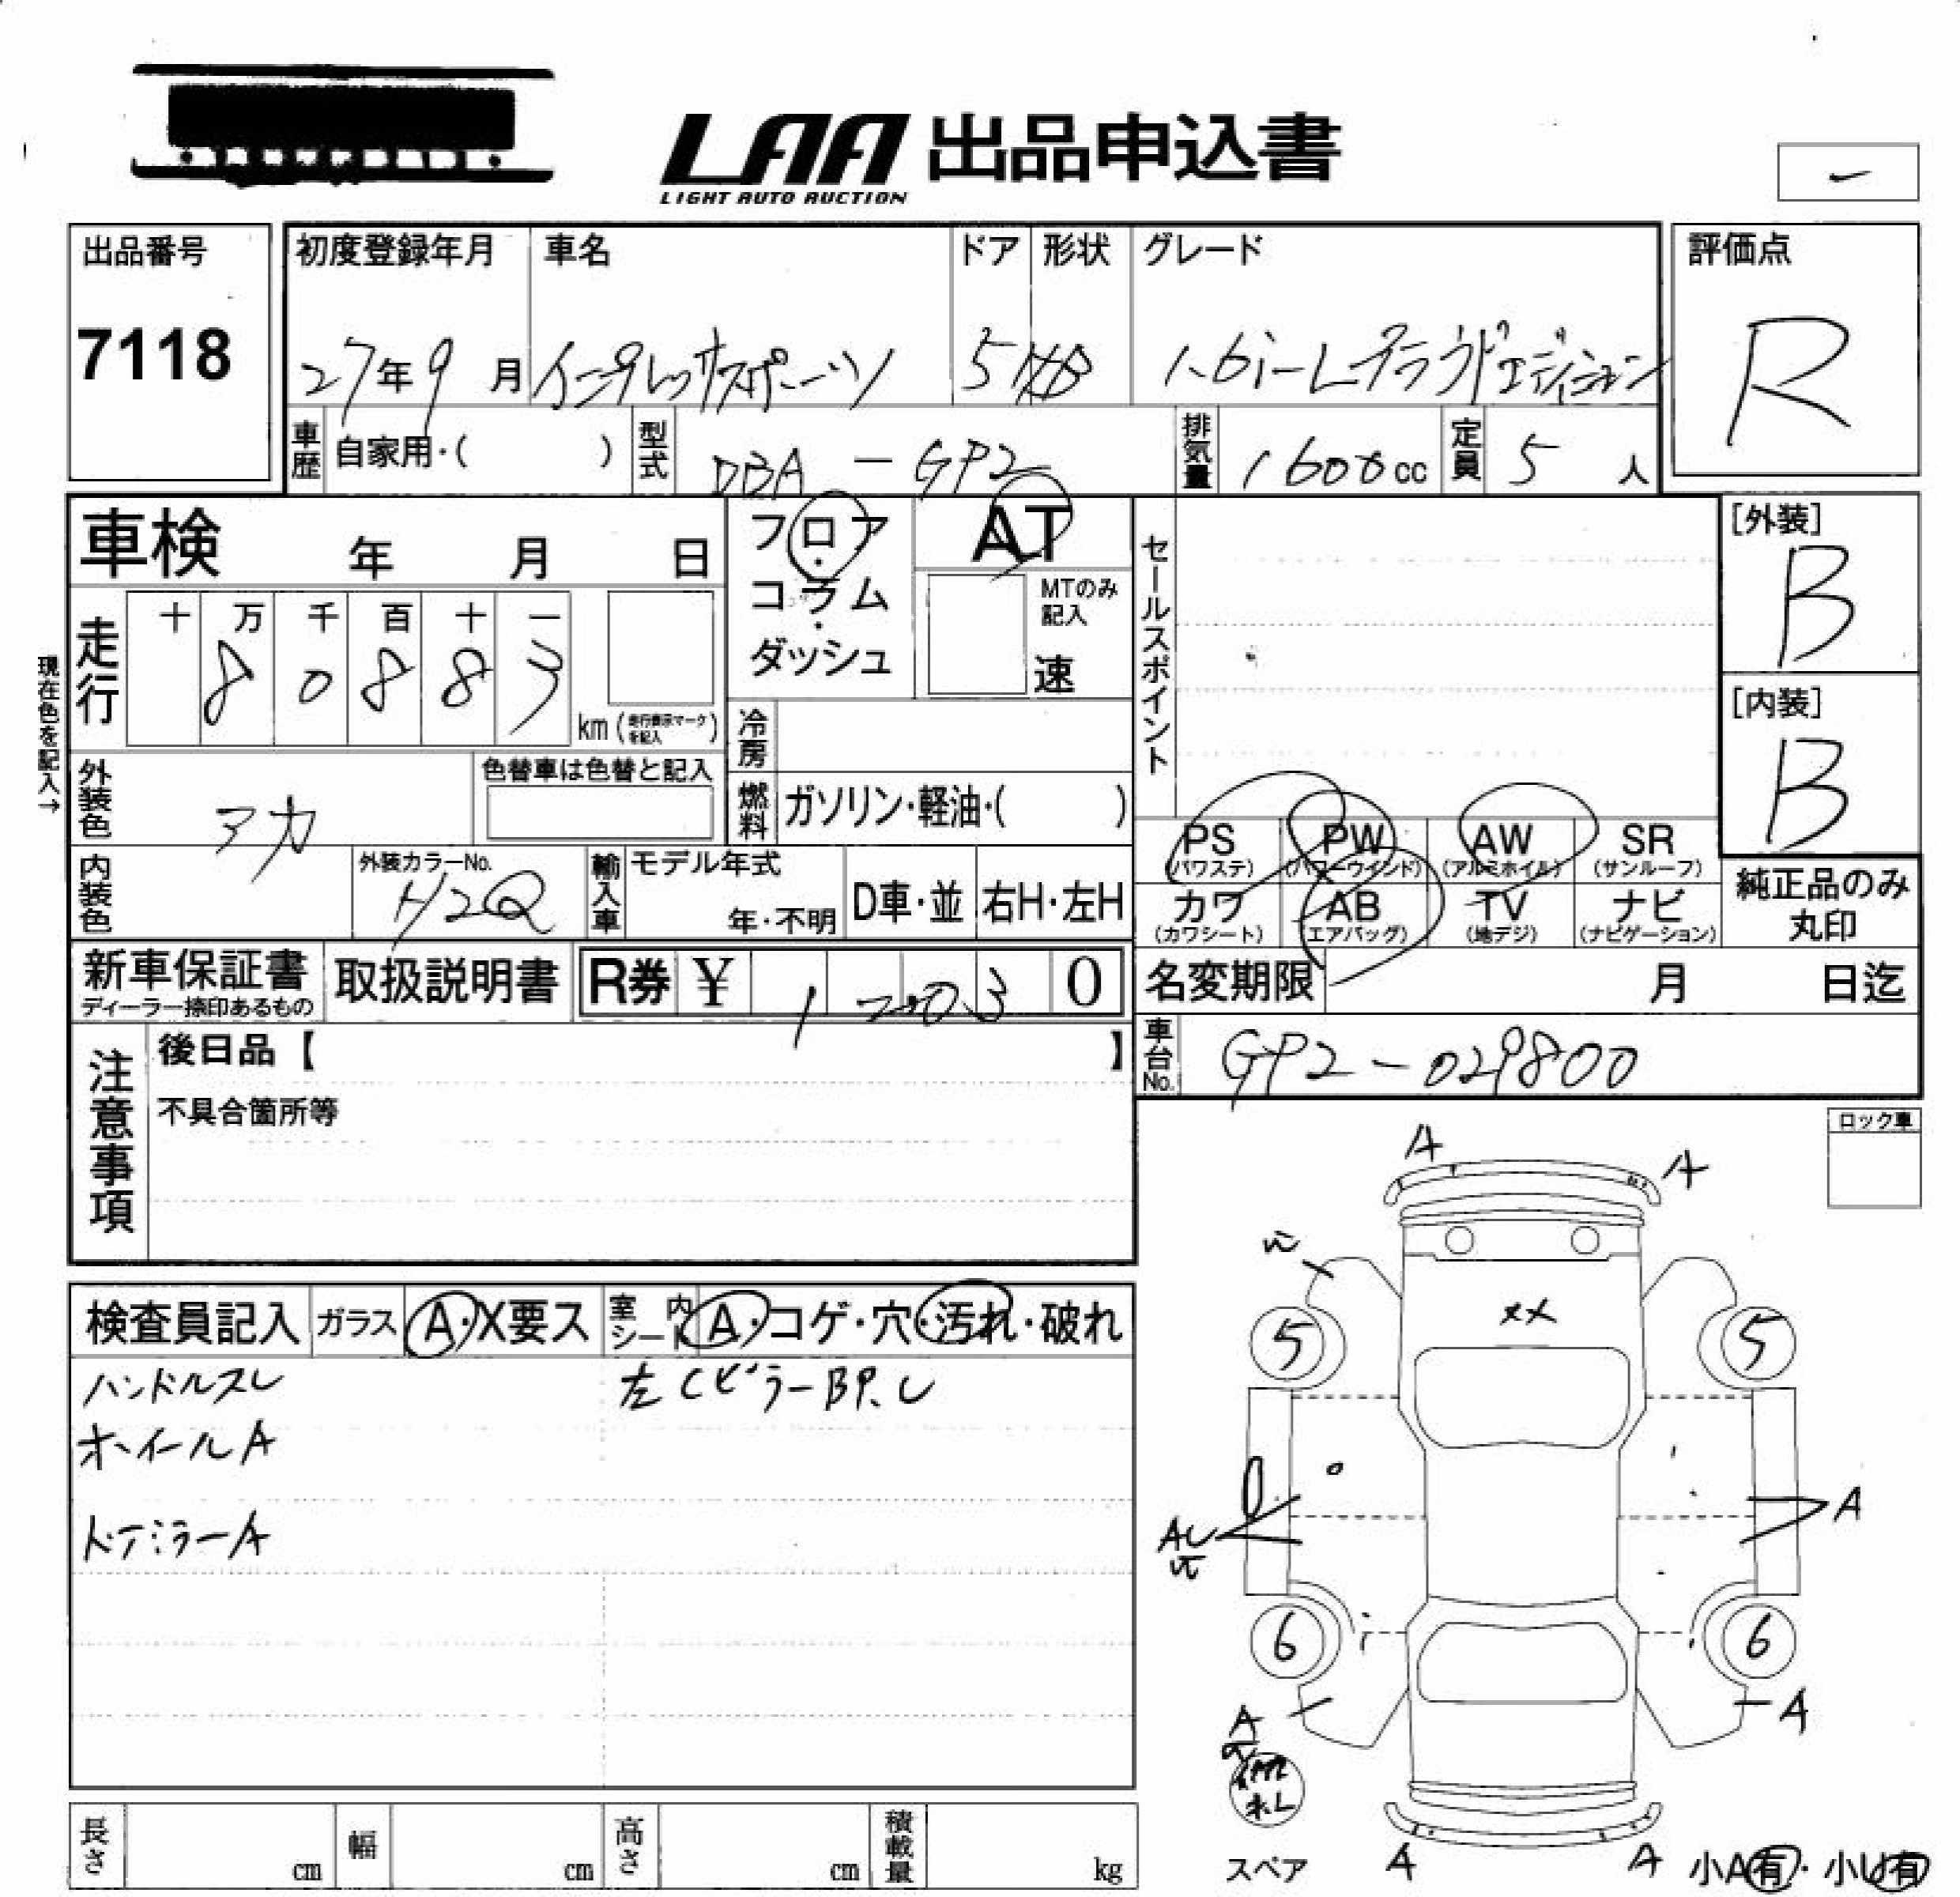 LAA 出品申込書
LIGHT AUTO AUCTION
出品番号
7118
初度登録年月 車名 ドア 形状 グレード
27年9月 インプレッサスポーツ 5 HB 1.6i-Lプラウドエディション
評価点
R
車歴 自家用・( ) 型式 DBA - GP2 排気量 1600cc 定員 5人
車検 年 月 日
フロア・コラム・ダッシュ
AT
MTのみ記入
速
セールスポイント
[外装]
B
[内装]
B
現在色を記入→
走行 十 万 千 百 十 一
8 0 8 8 3
km (走行表示マークを記入)
冷房
燃料 ガソリン・軽油・( )
外装色 アカ
色替車は色替と記入
内装色
外装カラーNo.
H2Q
輸入車 モデル年式
年・不明 D車・並 右H・左H
PS (パワステ) PW (パワーウインド) AW (アルミホイル) SR (サンルーフ)
カワ (カワシート) AB (エアバッグ) TV (地デジ) ナビ (ナビゲーション)
純正品のみ
丸印
新車保証書
ディーラー捺印あるもの
取扱説明書
R券 ¥ 1 2 0 3 0
名変期限 月 日迄
車台No. GP2-029800
注意事項
後日品【 】
不具合箇所等
ロック車
検査員記入 ガラス A・X要ス 室内シート A・コゲ・穴・汚れ・破れ
ハンドルスレ 左CピラーBP.U
ホイールA
ドアミラーA
A A
W
XX
5 5
A
AU
6 6
A A
スペア A A 小A有・小U有
長さ cm 幅 cm 高さ cm 積載量 kg